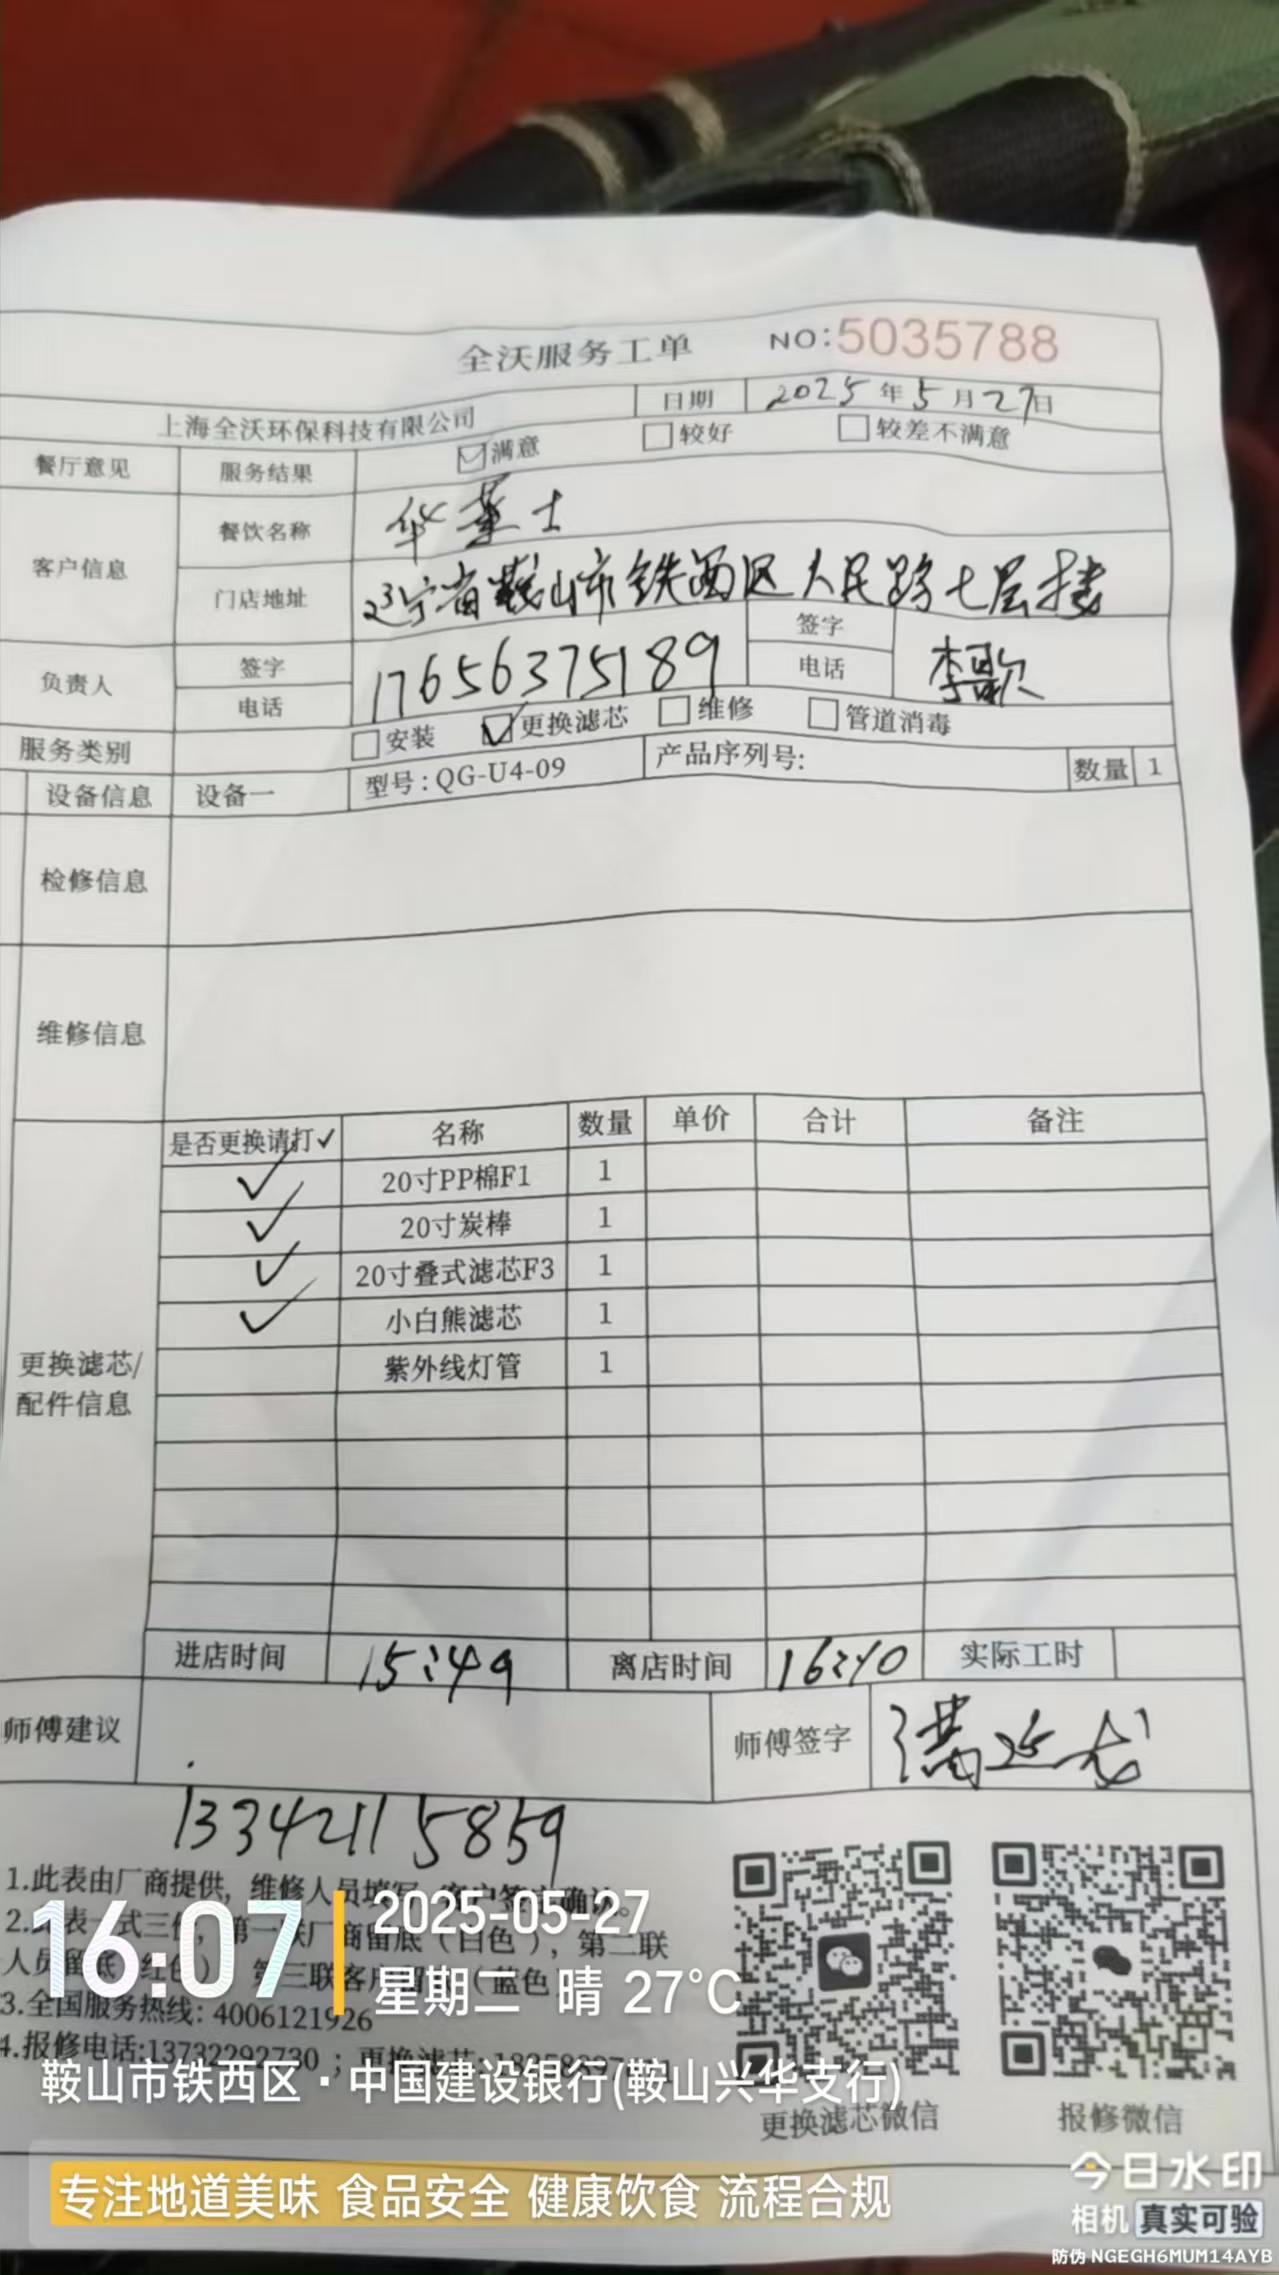 全沃服务工单 NO:5035788
上海全沃环保科技有限公司 日期 2025年5月27日
餐厅意见 服务结果 ☑满意 □较好 □较差不满意
客户信息 餐饮名称 华莱士
门店地址 辽宁省鞍山市铁西区人民路七层楼
负责人 签字 电话 17656375189 签字 电话 李歌
服务类别 □安装 ☑更换滤芯 □维修 □管道消毒
设备信息 设备一 型号:QG-U4-09 产品序列号: 数量 1
检修信息
维修信息
更换滤芯/配件信息
是否更换请打✓ 名称 数量 单价 合计 备注
✓ 20寸PP棉F1 1
✓ 20寸炭棒 1
✓ 20寸叠式滤芯F3 1
✓ 小白熊滤芯 1
紫外线灯管 1
进店时间 15:49 离店时间 16:10 实际工时
师傅建议 师傅签字
13342115859
1.此表由厂商提供,维修人员填写,客户签字确认。
2.此表一式三份,第一联厂商留底(白色),第二联
人员留底(红色),第三联客户留底(蓝色)
3.全国服务热线:4006121926
4.报修电话:13732292730;更换滤芯:
更换滤芯微信 报修微信
16:07
2025-05-27
星期二 晴 27°C
鞍山市铁西区·中国建设银行(鞍山兴华支行)
专注地道美味 食品安全 健康饮食 流程合规
今日水印
相机 真实可验
防伪 NGEGH6MUM14AYB